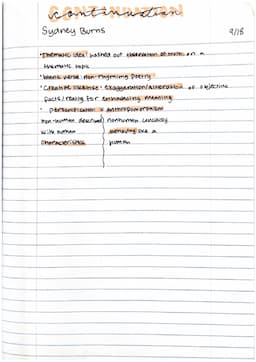 CONTINUATION
continuation
Sydney Burns 9/18
• Thematic idea: fleshed out observation of truth on a
thematic topic
• blank verse: non-rhyming poetry
• creative license: exaggeration/alteration of objective
facts/reality for enhancing meaning
• personification & anthropomorphism
non-human described nonhuman literally
with human behaving like a
characteristics human